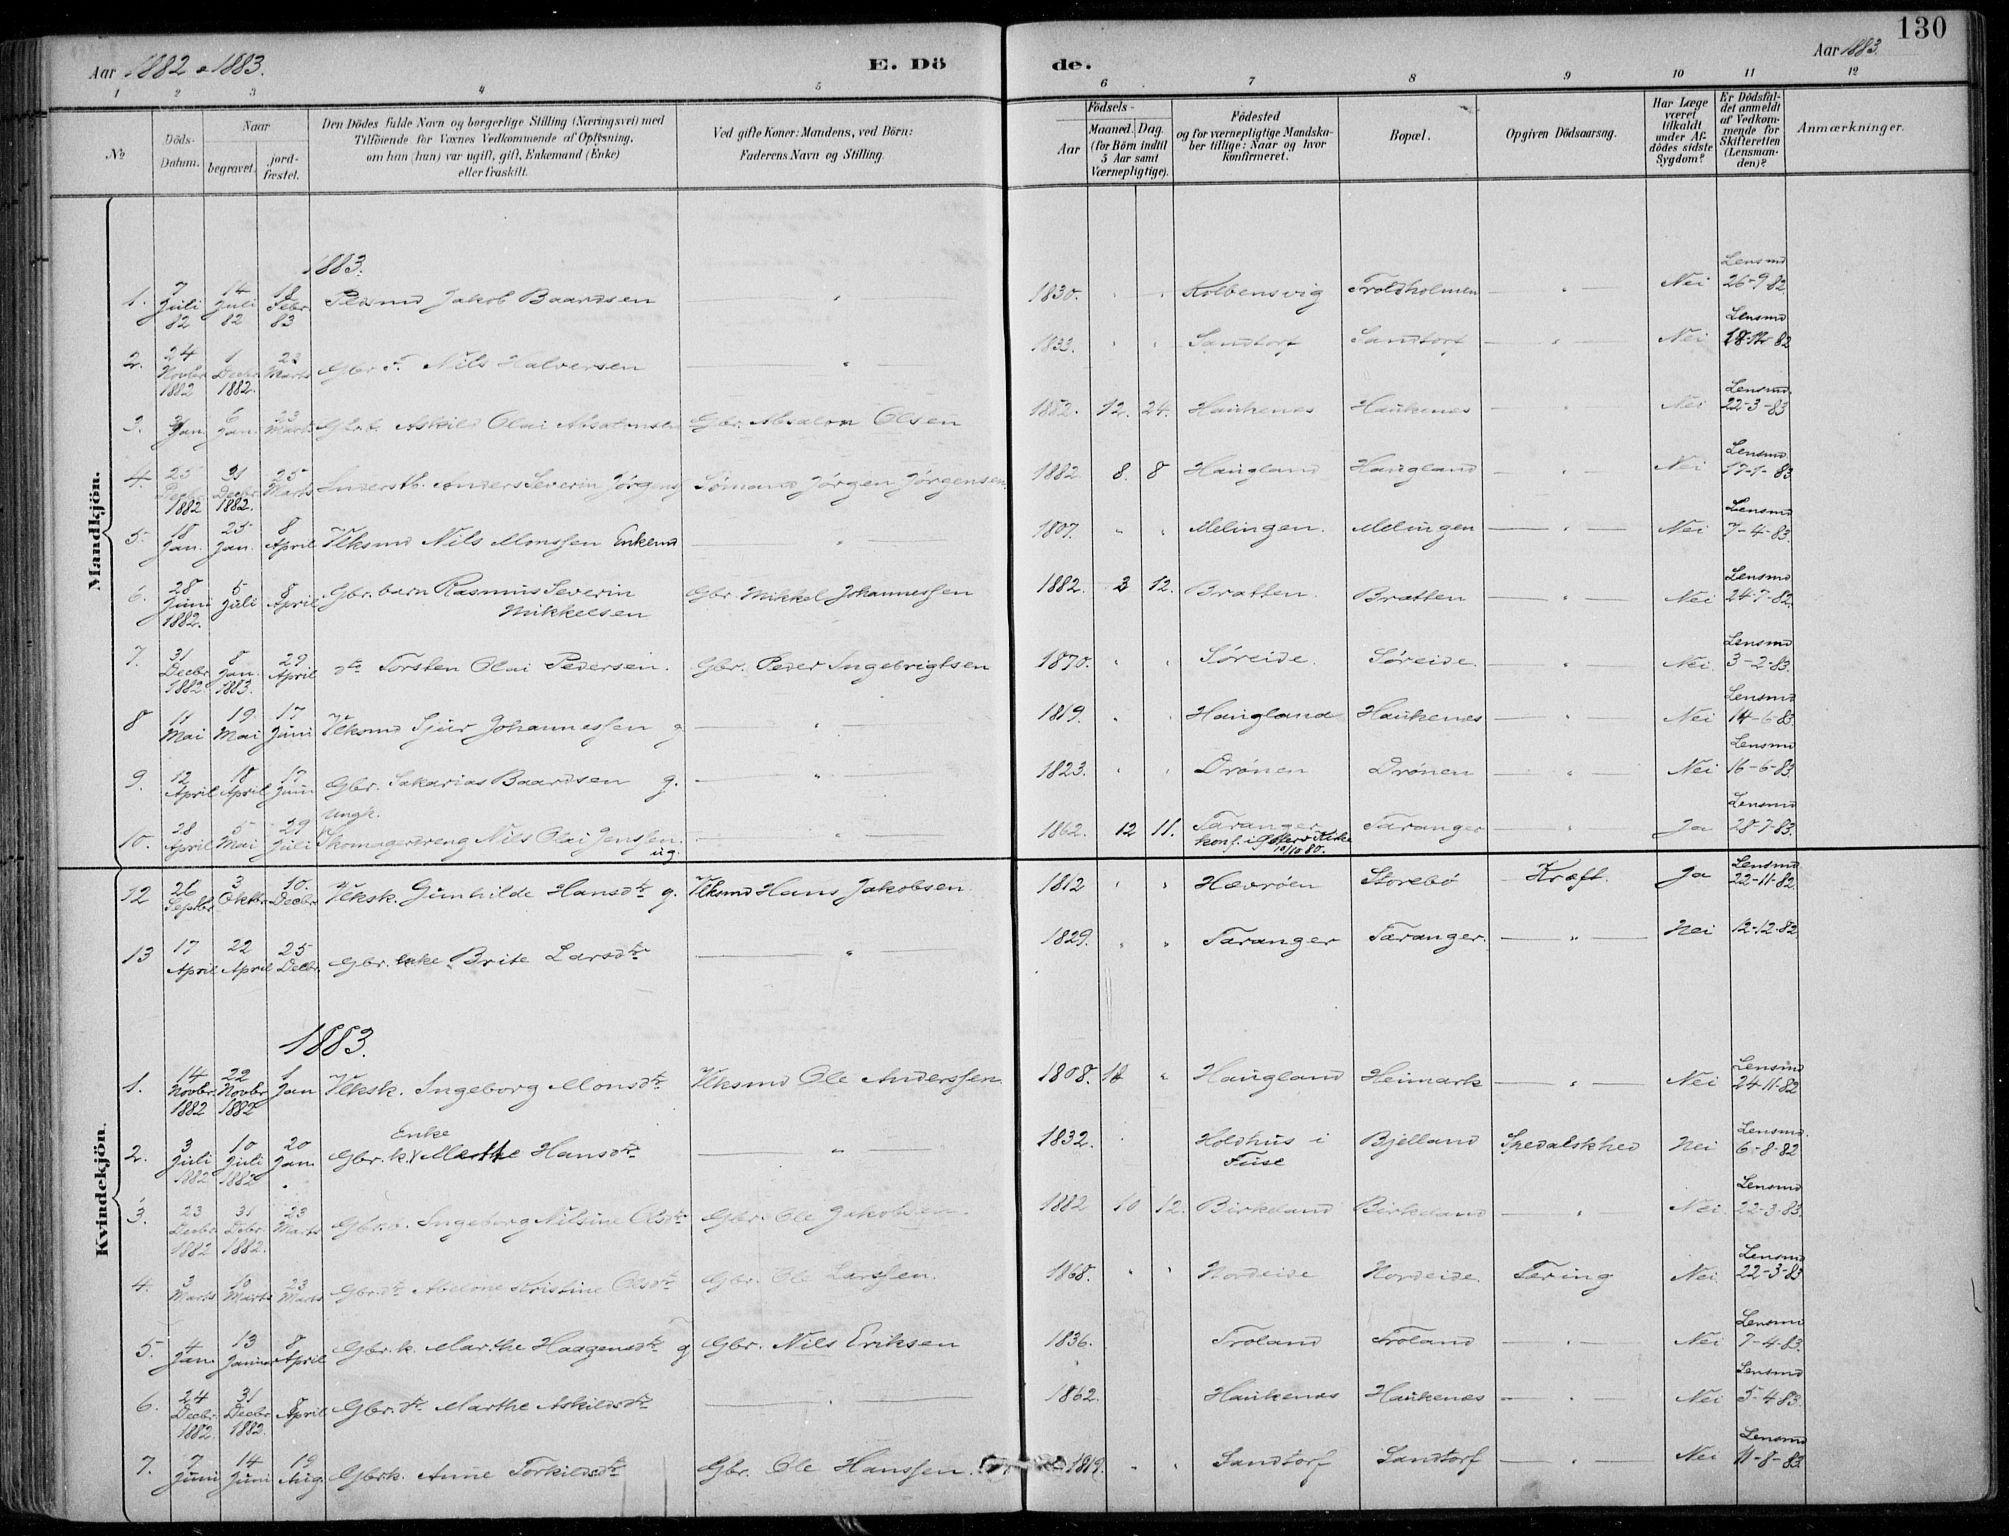 130
Aar 1882 & 1883.
E. Dö
de.
Aar 1883.
1 2 3 4 5 6 7 8 9 10 11 12
No
Döds-Datum.
Naar
begravet.
jord-fæstet.
Den Dödes fulde Navn og borgerlige Stilling (Næringsvei) med
Tilföiende for Voxnes Vedkommende af Oplysning,
om han (hun) var ugift, gift, Enkemand (Enke)
eller fraskilt.
Ved gifte Koner: Mandens, ved Börn:
Faderens Navn og Stilling.
Födsels-
Aar
Maaned. Dag.
(for Börn indtil
5 Aar samt
Værnepligtige).
Födested
og for værnepligtige Mandska-
ber tillige: Naar og hvor
konfirmeret.
Bopæl.
Opgiven Dödsaarsag.
Har Læge
været
tilkaldt
under Af-
dödes sidste
Sygdom?
Er Dödsfal-
det anmeldt
af Vedkom-
mende for
Skifteretten
(Lensman-
den)?
Anmærkninger.
Mandkjön.
1883.
1. 7 Juli 82 14 Juli 82 18 Febr 83 Jakob Baardsen " 1830. " " Kolbensvig Troldholmen " Nei Lensmd 26-9-82.
2. 24 Novbr 1882 1 Decbr 1882. 23 Marts Gbr Nils Halversen " 1833. " " Sandtorf Sandtorf " Nei Lensmd 82
3. Jan. 6 Jan. 23 Marts Askild Olai Gbr. Absalon Olsen 1882. 12. 24. Haukenes Haukenes " Nei Lensmd. 22-3-83
4. 25 Decbr 1882 31 Decbr 1882. 25 Marts Anders Severin Jørgens Sømand Jørgen Jørgensen. 1882 8. 8 Haugland Haugland " Nei Lensmd 17-1-83
5. 18 Jan. 25 Jan. 8 April Vlksmd Nils Monssen Enkemd " 1807. " " Melingen. Melingen " Nei Lensmd 7-4-83.
6. 28 Juni 1882. 5 Juli 8 April Gbr. barn Rasmus Severin
Mikkelsen Gbr Mikkel Johannessen 1882. 3 12. Bratten. Bratten " Nei Lensmd 24-7-82.
7. 31 Decbr 1882 8 Jan. 1883. 29 April dto Torsten Olai Pedersen. Gbr. Peder Ingebrigtsen 1870. " " Søreide. Søreide. " Nei. Lensmd 3-2-83.
8 11 Mai 19 Mai 17 Juni Vlksmd Sjur Johannessen g " 1819. " " Haugland Haukenes " Nei Lensmd 14-6-83
9. 12 April 18 April 17 Juni Gbr. Sakarias Baardsen g. " 1823. " " Drönen Drönen " Nei Lensmd 16-6-83.
10. 28 April 5 Mai 29 Juli Ungk.
Skomagerdreng Nils Olai Jenssen.
ug. " 1862. 12 11. Taranger
konf. i
10/10 80. Taranger " Ja Lensmd 28-7-83.
12 26 Septbr 3 Oktbr 10 Decbr Vlksk. Gunhilde Hansdtr g. Vlksmd Hans Jakobsen. 1812 " " Hevröen Storebö Kræft. Ja Lensmd. 22-11-82.
13 17 April 22 April 25 Decbr. Gbr. enke Brite Larsdtr " 1829. " " Taranger Taranger. " Nei 12-12-82.
Kvindekjön.
1883.
1. 14 Novbr. 1882 22 Novbr 1882 1 Jan Vlksk. Ingeborg Monsdtr Vlksmd Ole Anderssen. 1808. " Haugland Heimark " Nei Lensmd 24-11-82
2. 3 Juli 1882 10 Juli 1882 20 Jan. Enke
Gbr. k. Marthe Hansdtr " 1832. Holdhus i
Fuse Bjelland Spedalskhed Nei Lensmd. 6-8-82
3. 23 Decbr 1882 31 Debr. 1882. 23 Marts Gbr. b. Ingeborg Nilsine Olsdtr Gbr. Ole Jakobsen. 1882 10 12. Birkeland Birkeland " Nei. Lensmd 22-3-83.
4. 3 Marts 10 Marts 23 Marts Gbr. dtr Abelone Kristine Olsdtr Gbr. Ole Larssen. 1868. " " Nordeide Nordeide. Tæring Nei. Lensmd 22-3-83
5. 4 Jan. 13 Januar 8 April Gbr. k. Marthe Haagensdtr g Gbr. Nils Eriksen 1836. Troland Troland " Nei Lensmd 7-4-83.
6. 24 Decbr. 1882. 31 Decbr 1882. 8 April Gbr. dtr Marthe Askildsdtr " 1862. Haukenes Haukenes " Nei Lensmd 5-4-83.
7. 7 Juni 14 Juni 19 Aug. Gbrk. Anne Torkildsdtr Gbr. Ole Hanssen. 1819. " " Sandtorf Sandtorf " Nei Lensmd 11-8-83.